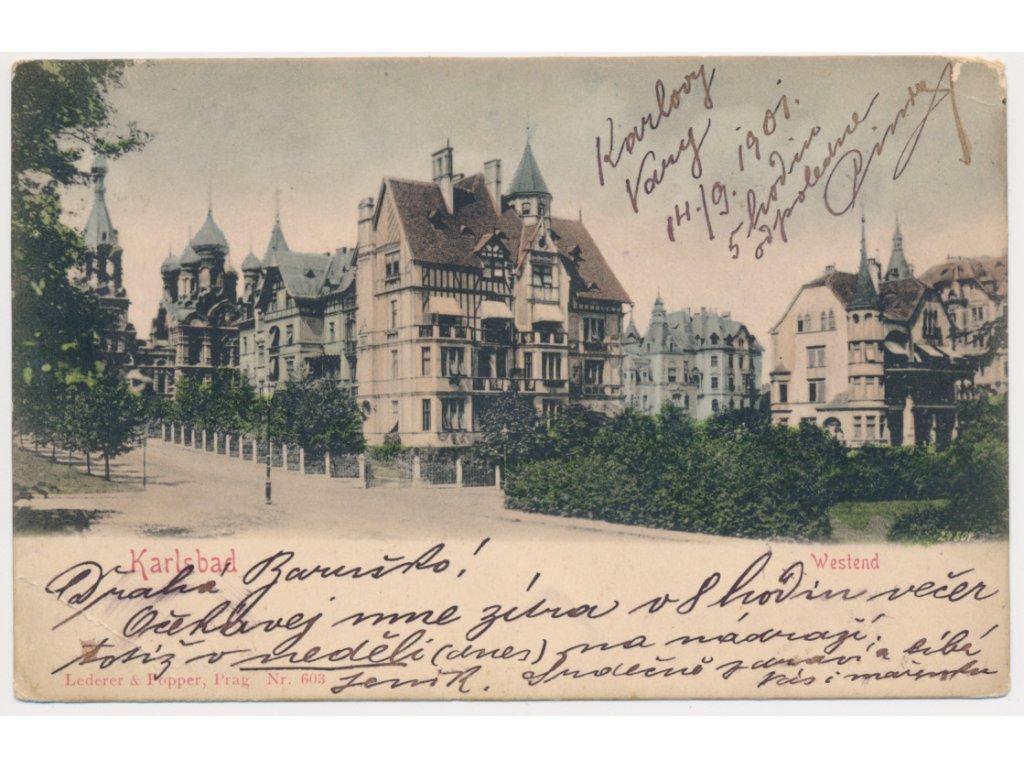 Karlovy
Vary
14./9. 1901.
5 hodin
odpoledne
24804
Karlsbad
Westend
Drahá Baruško!
Očekávej mne zítra v 8 hodin večer
totiž v neděli (dnes) na nádraží.
Srdečně zdraví a líbá
Lederer & Popper, Prag Nr. 603
Jeník.